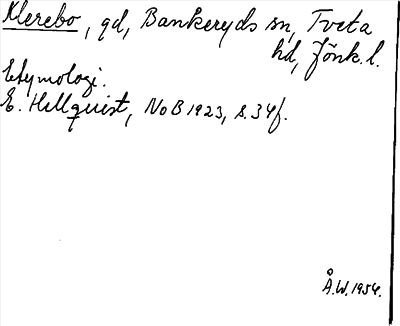 Klerebo, gd, Bankeryds sn, Tveta
hd, Jönk. l.
Etymologi.
E. Hellquist, NoB 1923, s. 34f.
Å.W. 1954.